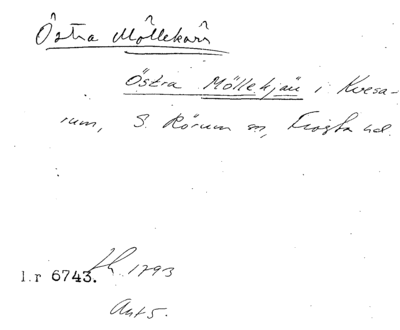 Östra Möllekärr
Östra Möllekjär i Kvesa-
rum, S. Rörum sn, Frosta hd.
1793
l.r 6743.
Avt 5.